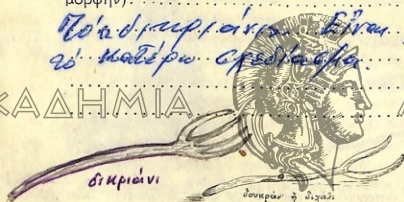 μορφήν)
Τό δικριάνι. Εἶναι
τό κατέρω σχεδίασμα.
ΚΑΔΗΜΙΑ
δικριάνι
δουκράν ἤ διχάλι